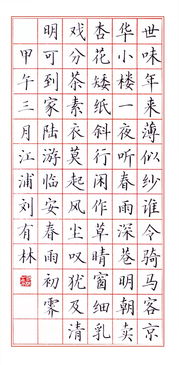 世味年来薄似纱谁令骑马客京
华小楼一夜听春雨深巷明朝卖
杏花矮纸斜行闲作草晴窗细乳
戏分茶素衣莫起风尘叹犹及清
明可到家陆游临安春雨初霁
甲午三月江浦刘有林